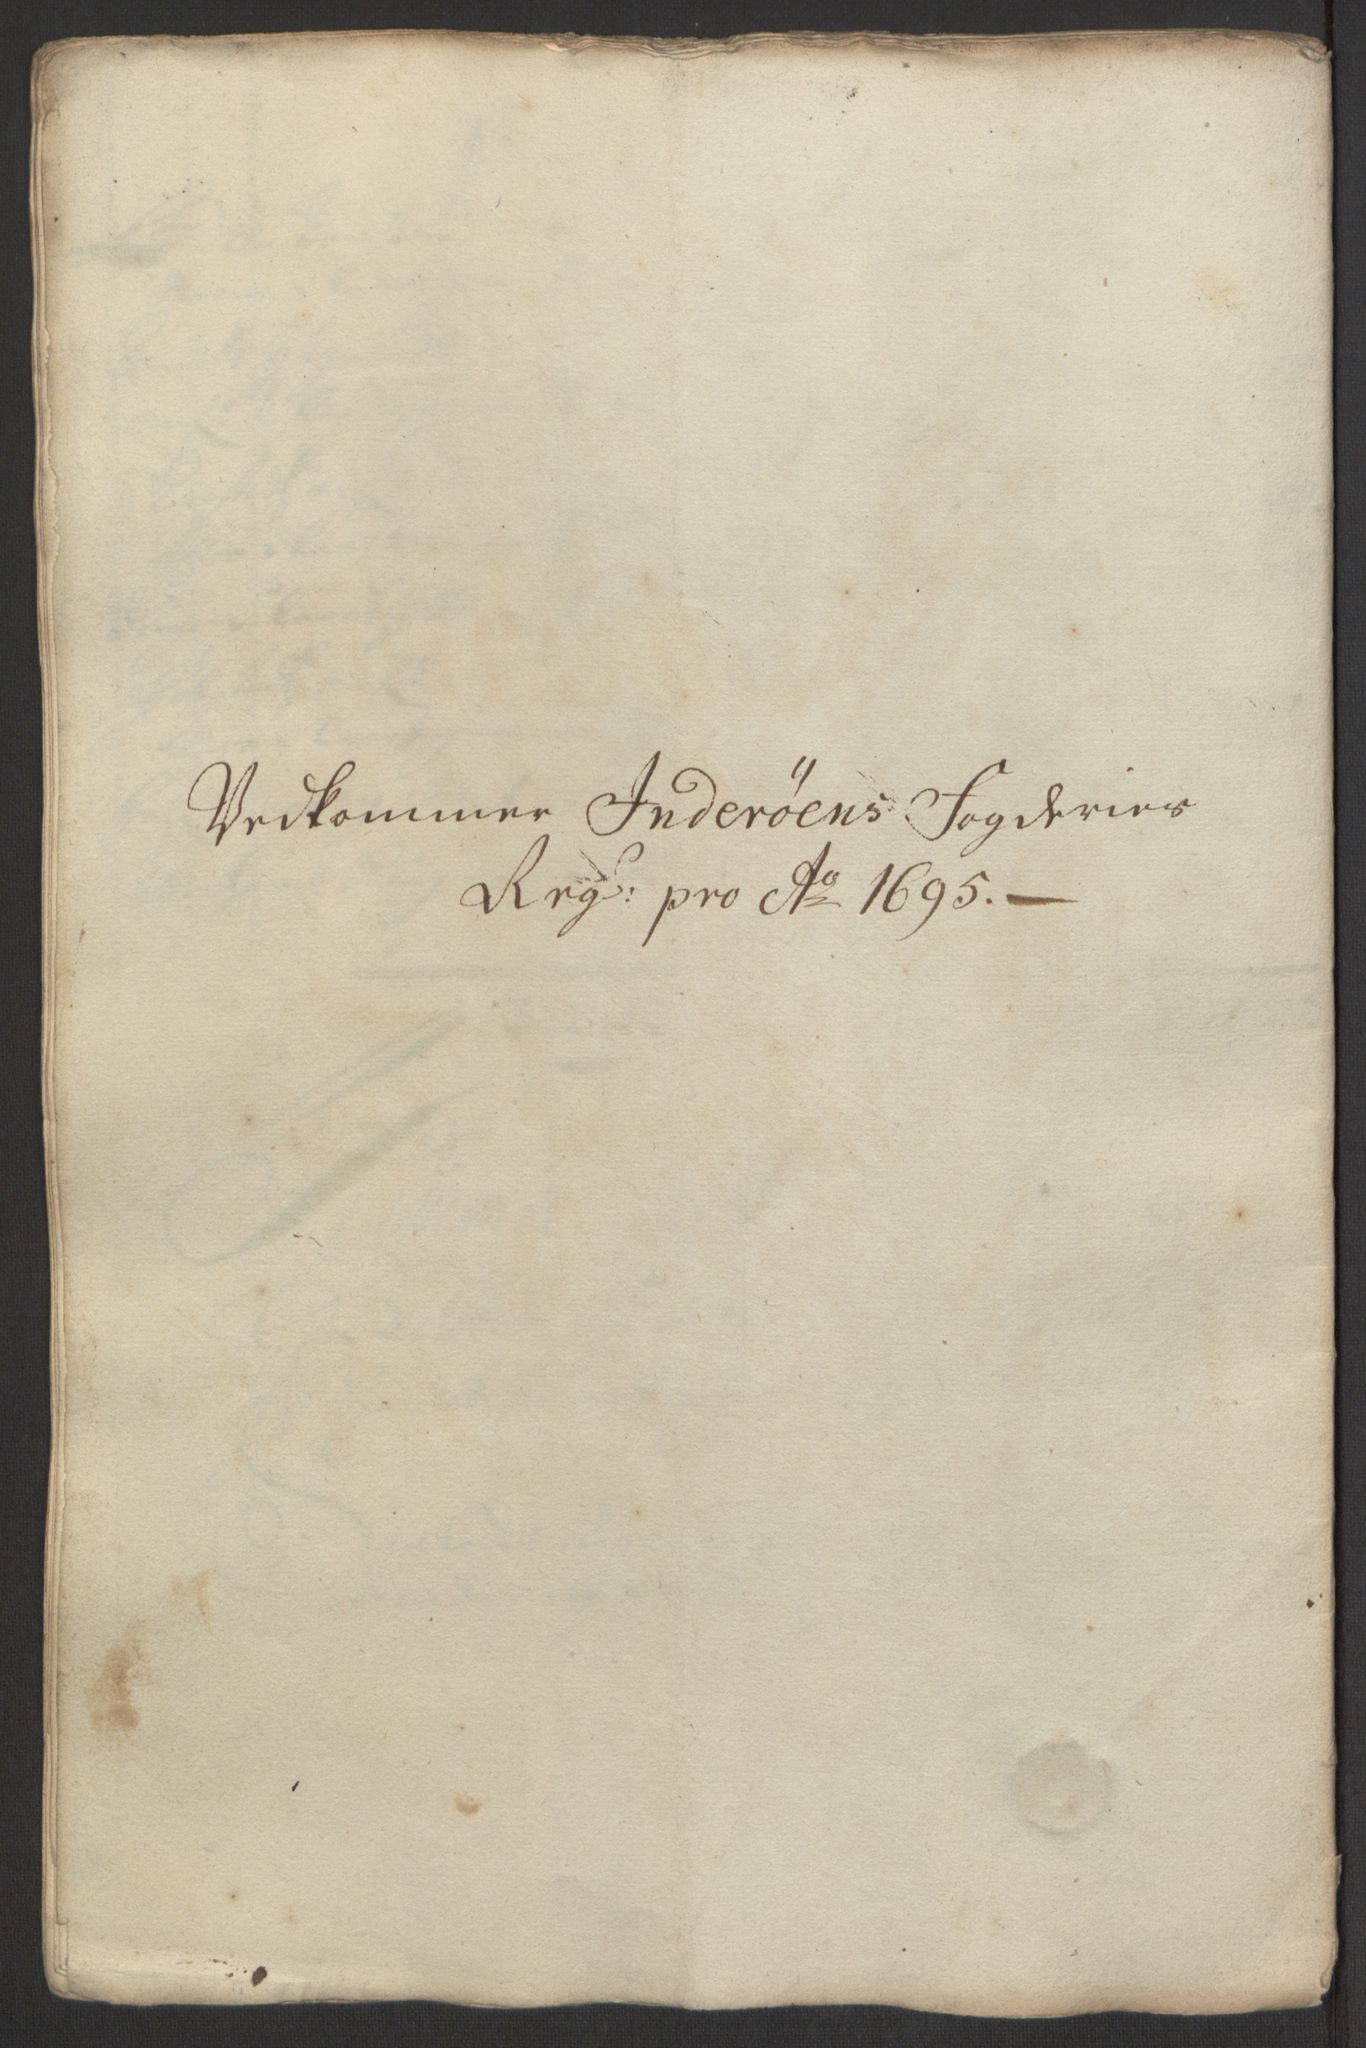 Vedkommer Inderöens Fogderies
Regs: pro Ao 1695.—